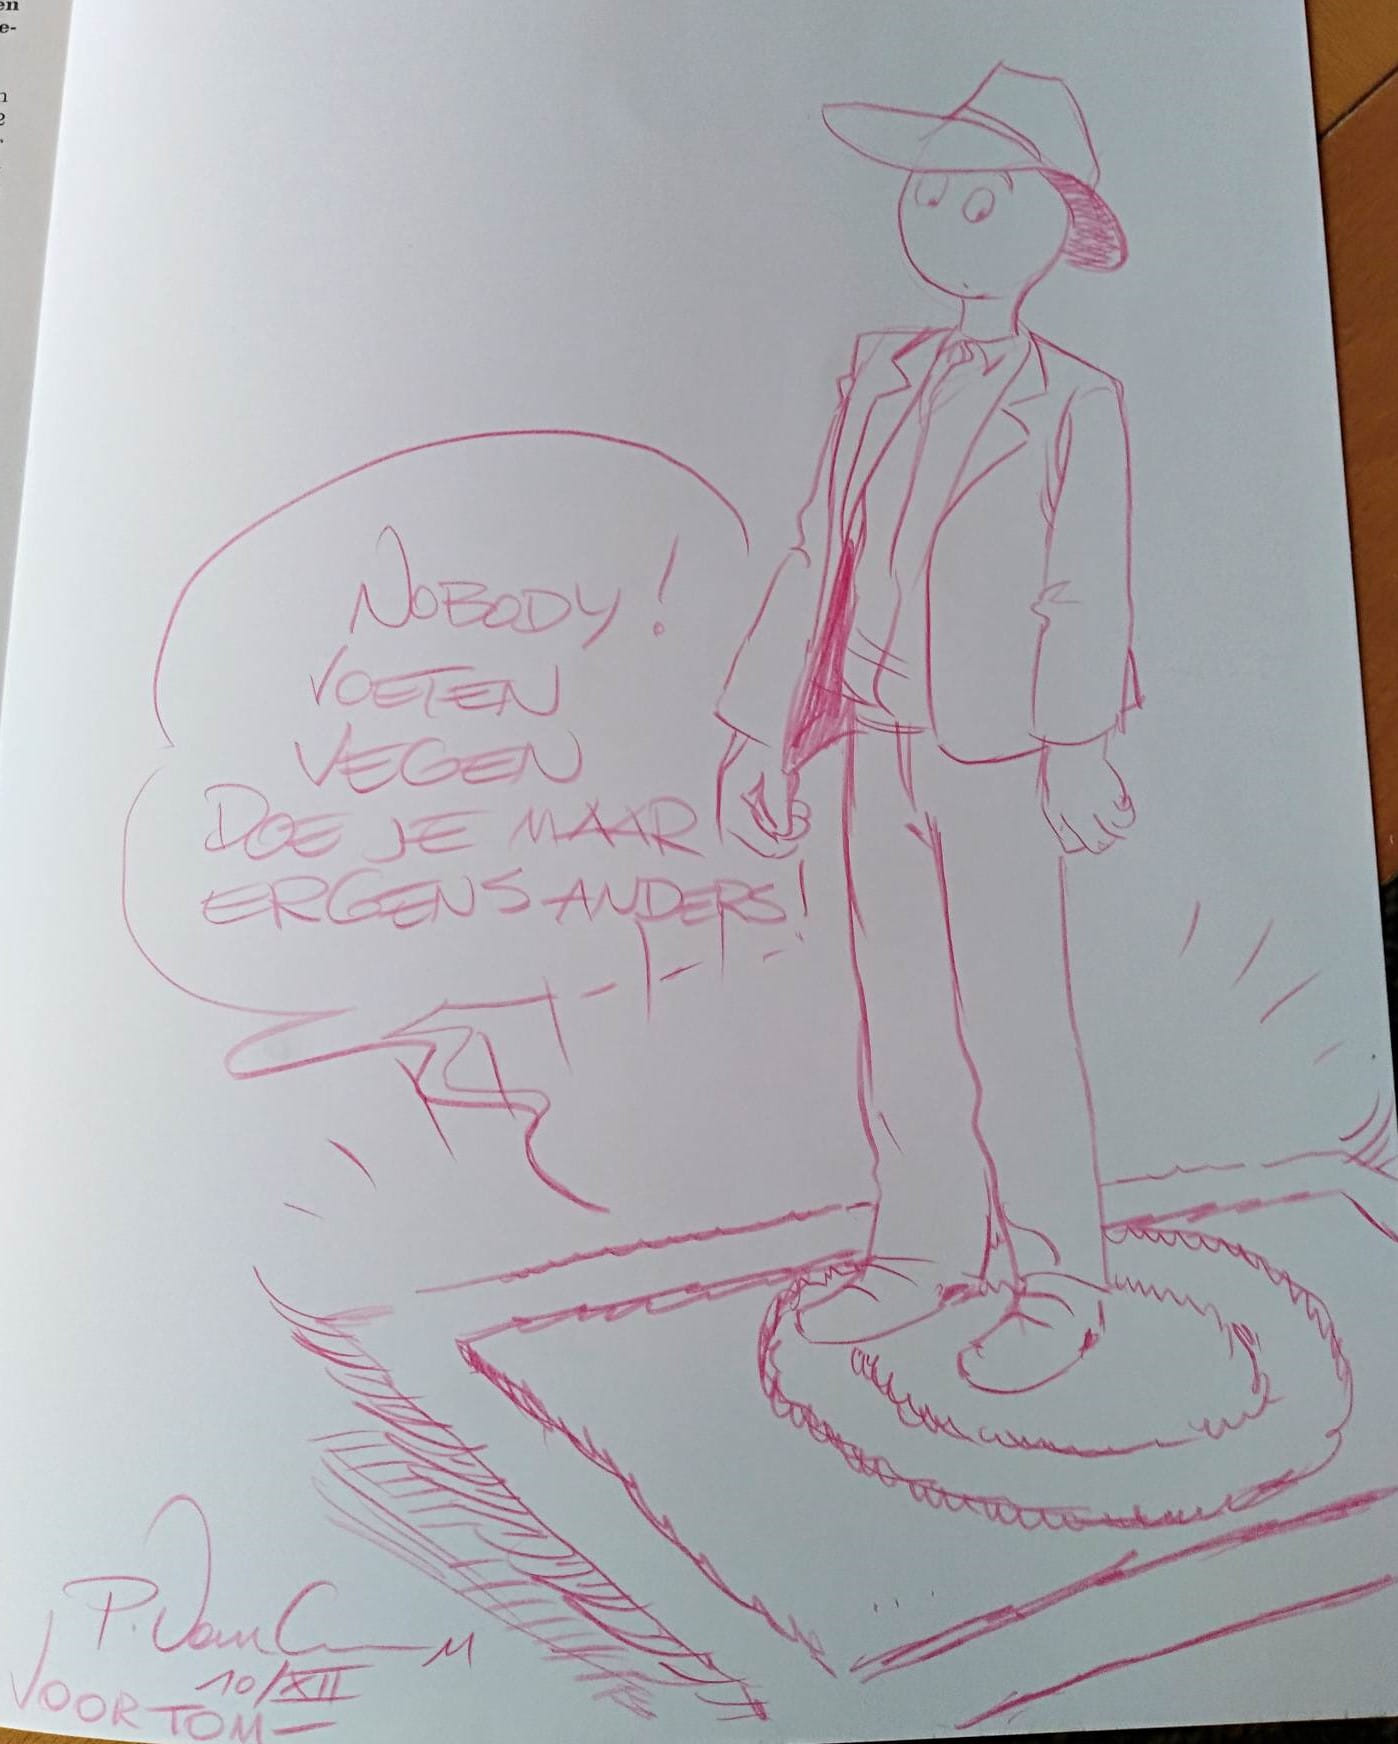 en
e-
n
2
NOBODY!
VOETEN
VEGEN
DOE JE MAAR
ERGENS ANDERS!
P. Van
11
10/XII
VOOR TOM